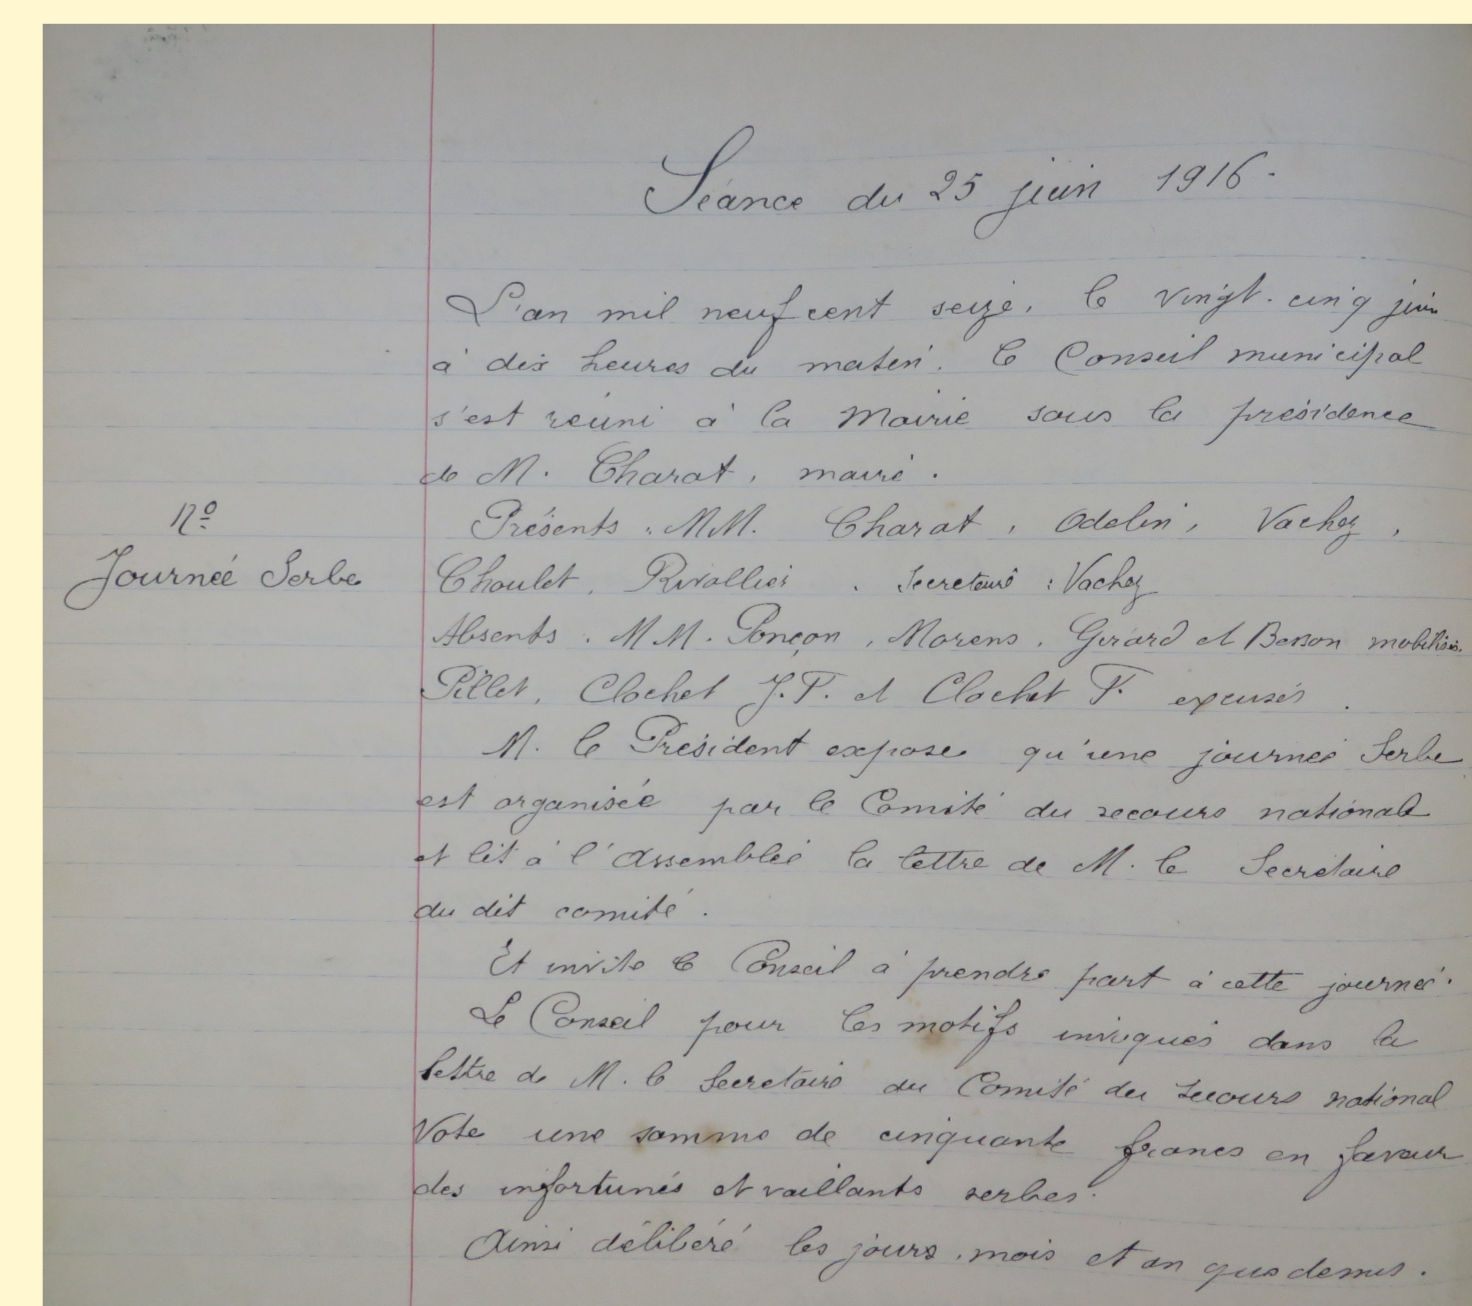 Séance du 25 juin 1916.
L'an mil neuf cent seize, le vingt-cinq juin
à dix heures du matin, le Conseil municipal
s'est réuni à la Mairie sous la présidence
de M. Charat, maire.
Nº
Présents : MM. Charat, Odelin, Vachez,
Journée Serbe
Choulet, Rivollier. Secrétaire : Vachez
Absents. MM. Ponçon, Morens, Girard et Besson mobilisés.
Pillet, Clochet J.P. et Clochet P. excusés.
M. le Président expose qu'une journée Serbe
est organisée par le Comité du secours national
et lit à l'Assemblée la lettre de M. le Secrétaire
du dit comité.
Et invite le Conseil à prendre part à cette journée.
Le Conseil pour les motifs invoqués dans la
lettre de M. le Secrétaire du Comité du Secours national
Vote une somme de cinquante francs en faveur
des infortunés et vaillants serbes.
Ainsi délibéré les jours, mois et an que dessus.